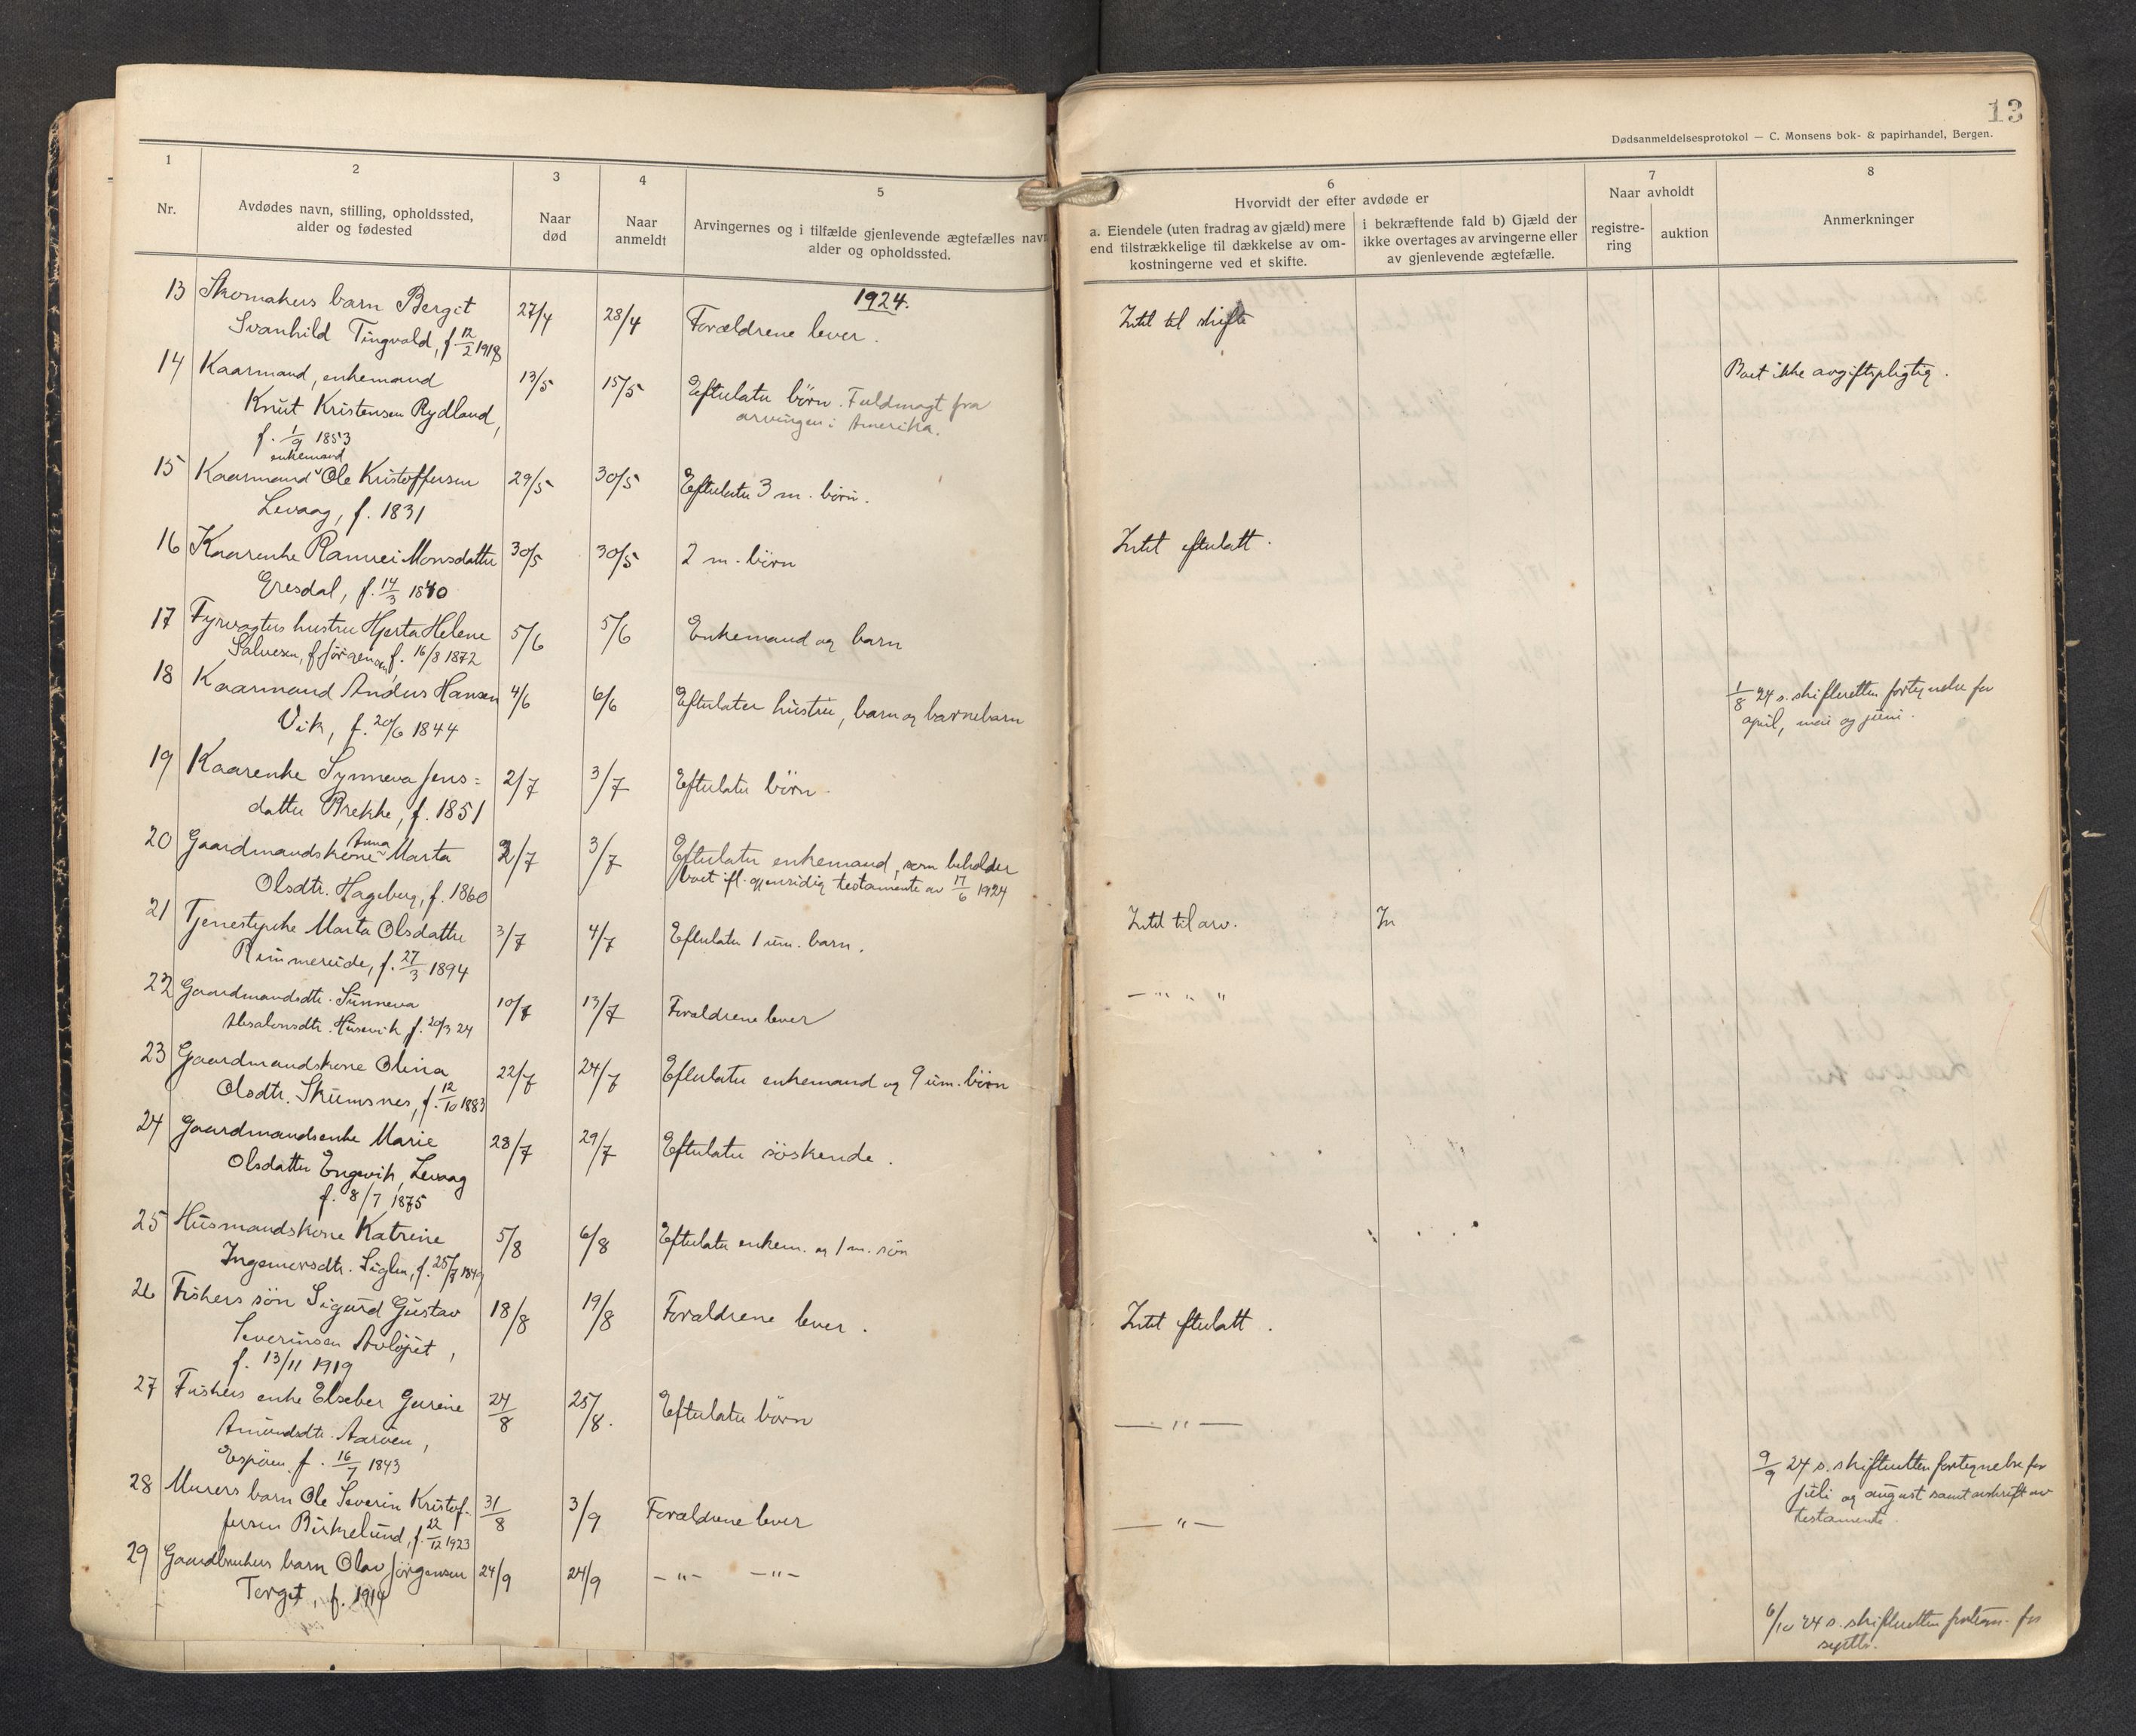 13
Dødsanmeldelsesprotokol — C. Monsens bok- & papirhandel, Bergen.
1
2
3
4
5
6
7
8
Nr.
Avdødes navn, stilling, opholdssted,
alder og fødested
Naar
død
Naar
anmeldt
Arvingernes og i tilfælde gjenlevende ægtefælles navn
alder og opholdssted.
Hvorvidt der efter avdøde er
a. Eiendele (uten fradrag av gjæld) mere
end tilstrækkelige til dækkelse av om-
kostningerne ved et skifte.
i bekræftende fald b) Gjæld der
ikke overtages av arvingerne eller
av gjenlevende ægtefælle.
Naar avholdt
registre-
ring
auktion
Anmerkninger
1924.
13 Skomakers barn Bergit 27/4 28/4 Forældrene lever. Intet til skifte
Svanhild Tingvold, f. 12/2 1918
14 Kaarmand, enkemand 13/5 15/5 Efterlater børn. Fuldmagt fra Boet ikke avgiftspligtig.
Knut Kristensen Rydland, arvingen i Amerika.
f. 1/9 1853
enkemand
15 Kaarmand Ole Kristoffersen 29/5 30/5 Efterlater 3 m. børn.
Levaag, f. 1831
16 Kaarenke Rannei Monsdatter 30/5 30/5 2 m. børn Intet efterlatt.
Eresdal, f. 14/3 1840
17 Fyrvogters hustru Hjerta Helene 5/6 5/6 Enkemand og barn
Salvesen, f. Jørgensen, f. 16/8 1872
18 Kaarmand Anders Hansen 4/6 6/6 Efterlater hustru, barn og barnebarn 1/8 24 s. skifteretten fortegnelse for
Vik, f. 20/6 1844 april, mai og juni.
19 Kaarenke Synneva Jens= 2/7 3/7 Efterlater børn.
datter Brekke, f. 1851
20 Gaardmandskone Anna Marta 2/7 3/7 Efterlater enkemand, som beholder
Olsdtr. Hageberg, f. 1860 boet ifl. gjensidig testamente av 17/6 1924
21 Tjenestepike Marta Olsdatter 3/7 4/7 Efterlater 1 um. barn. Intet til arv. In
Rimmereide, f. 27/3 1894
22 Gaardmandsdtr. Sunneva 10/7 13/7 Forældrene lever — " " "
Absalonsdtr. Husevik, f. 20/3 24
23 Gaardmandskone Olina 22/7 24/7 Efterlater enkemand og 9 um. børn
Olsdtr. Skumsnes, f. 12/10 1883
24 Gaardmandsenke Marie 28/7 29/7 Efterlater søskende.
Olsdatter Engevik, Levaag
f. 8/7 1875
25 Husmandskone Katrine 5/8 6/8 Efterlater enkem. og 1 m. søn
Ingemorsdtr. f. 25/7 1849
26 Fiskers søn Sigurd Gustav 18/8 19/8 Forældrene lever. Intet efterlatt.
Severinsen Avløpet,
f. 13/11 1919
27 Fiskers enke Elseber Gurine 24/8 25/8. Efterlater børn — " —
Amundsdtr. Aarøen,
f. 16/7 1843 9/9 24 s. skifteretten fortegnelse for
juli og august samt avskrift av
testamente.
28 Murers barn Ole Severin Kristof- 31/8 3/9 Forældrene lever — " —
fersen Birkelund, f. 22/12 1923
29 Gaardbrukers barn Olav Jørgensen 24/9 24/9 — " — — " —
Torget, f. 1914
6/10 24 s. skifteretten for
septbr.